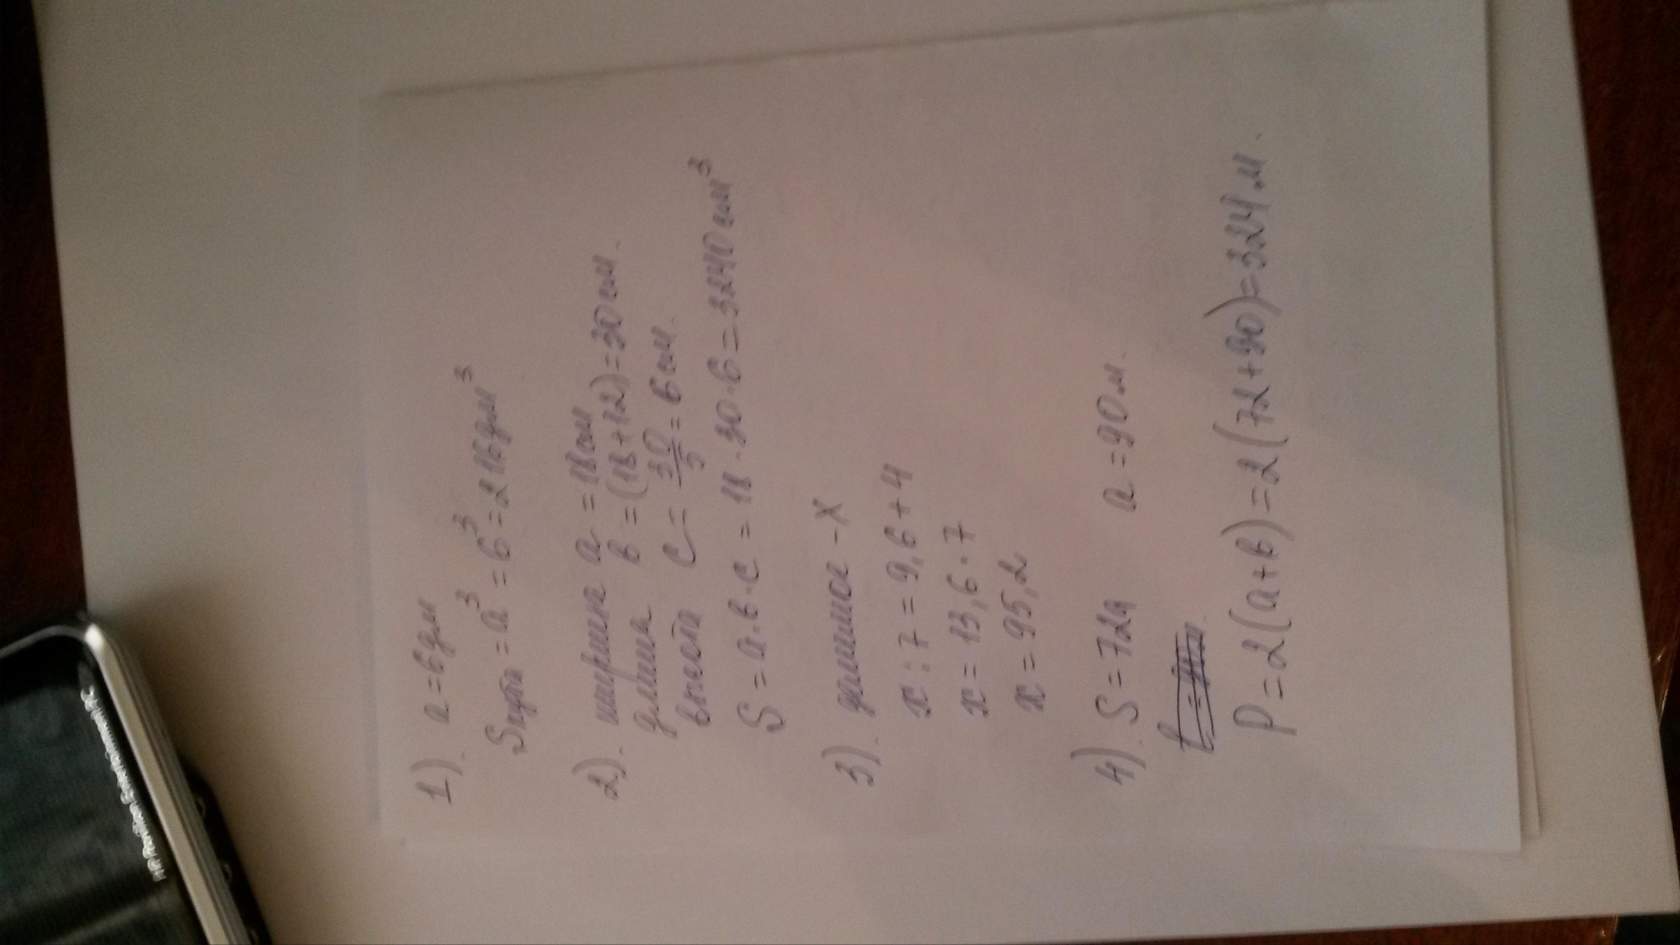 1). a = 6дм
Sкуба = a³ = 6³ = 216дм³
2). ширина a = 18см
длина в = (18+12) = 30см.
высота c = 30/5 = 6см.
S = a·в·c = 18·30·6 = 3240см³
3). делимое - x
x : 7 = 9,6+4
x = 13,6·7
x = 95,2
4). S = 72а a = 90м.
P = 2(a+в) = 2(72+90) = 324м.
HP Pavilion Entertainment PC